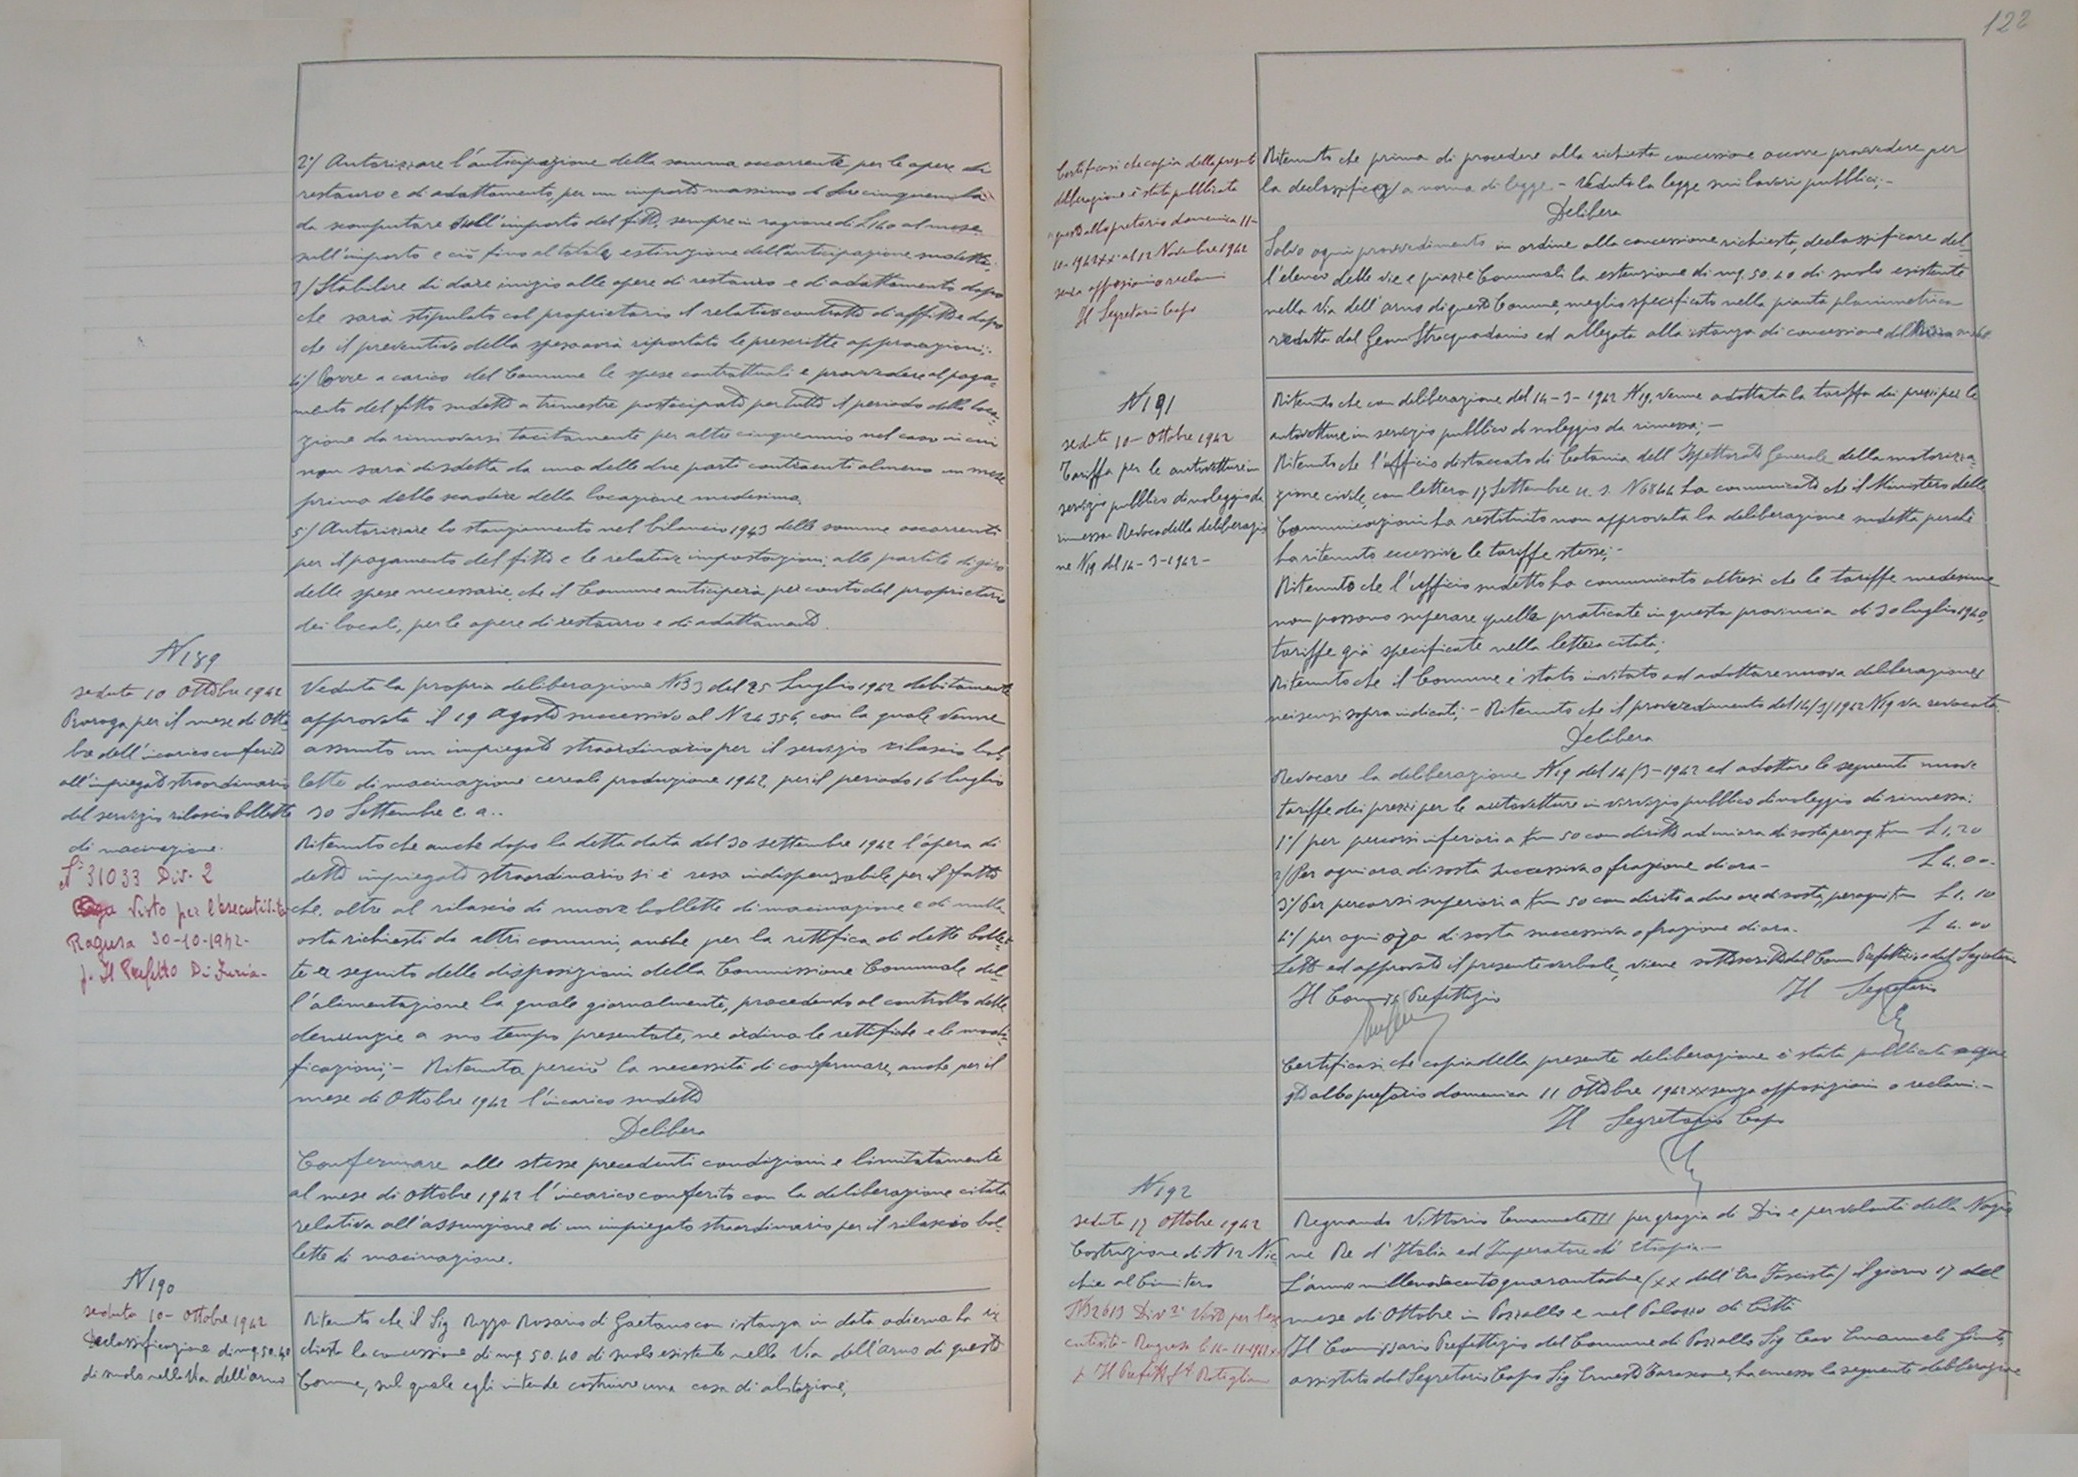 2°/ Autorizzare l'anticipazione della somma occorrente per le opere di
restauro e di adattamento, per un importo massimo di Lire cinquemila
da scomputare sull'importo del fitto, sempre in ragione di L 140 al mese
sull'importo e ciò fino al totale estinzione dell'anticipazione sudetta;
3°/ Stabilire di dare inizio alle opere di restauro e di adattamento dopo
che sarà stipulato col proprietario il relativo contratto di affitto e dopo
che il preventivo della spesa avrà riportato le prescritte approvazioni;
4°/ Porre a carico del Comune le spese contrattuali e provvedere al paga-
mento del fitto sudetto a trimestre posticipato per tutto il periodo della loca-
zione da rinnovarsi tacitamente per altro cinquennio nel caso in cui
non sarà disdetta da una delle due parti contraenti almeno un mese
prima dello scadere della locazione medesima.
5°/ Autorizzare lo stanziamento nel bilancio 1943 delle somme occorrenti
per il pagamento del fitto e le relative impostazioni alle partite di giro
delle spese necessarie, che il Comune anticiperà per conto del proprietario
dei locali, per le opere di restauro e di adattamento.
N 189
seduta 10 Ottobre 1942
Proroga per il mese di Otto
bre dell'incarico conferito
all'impiegato straordinario
del servizio rilascio bollette
di macinazione.
N° 31033 Div. 2
Visto per l'esecutività
Ragusa 30-10-1942-
p. Il Prefetto Di Furia-
Veduta la propria deliberazione N 133 del 25 Luglio 1942 debitamente
approvata il 19 Agosto successivo al N 24356, con la quale venne
assunto un impiegato straordinario per il servizio rilascio bol-
lette di macinazione cereali produzione 1942, per il periodo 16 luglio
30 Settembre c. a..
Ritenuto che anche dopo la detta data del 30 settembre 1942 l'opera di
detto impiegato straordinario si è resa indispensabile per il fatto
che, oltre al rilascio di nuove bollette di macinazione e di nulla
osta richiesti da altri comuni, anche per la rettifica di dette bollet-
te a seguito delle disposizioni della Commissione Comunale del-
l'alimentazione la quale giornalmente, procedendo al controllo delle
denunzie a suo tempo presentate, ne ordina le rettifiche e le modi-
ficazioni;- Ritenuta perciò la necessità di confermare, anche per il
mese di Ottobre 1942 l'incarico sudetto
Delibera
Confermare alle stesse precedenti condizioni e limitatamente
al mese di Ottobre 1942 l'incarico conferito con la deliberazione citata
relativa all'assunzione di un impiegato straordinario per il rilascio bol-
lette di macinazione.
N 190
seduta 10- Ottobre 1942
Declassificazione di mq 50.40
di suolo nella Via dell'Arno
Ritenuto che il Sig Rizza Rosario di Gaetano con istanza in data odierna ha ri
chiesto la concessione di mq 50.40 di suolo esistente nella Via dell'Arno di questo
Comune, sul quale egli intende costruire una casa di abitazione;
122
Certificasi che copia della presente
deliberazione è stata pubblicata
a questo albo pretorio domenica 11-
10-1942 XX° al 12 Novembre 1942
senza opposizioni o reclami
Il Segretario Capo
Ritenuto che prima di procedere alla richiesta concessione occorre provvedere per
la declassificaz/ a norma di legge.- Veduta la legge sui lavori pubblici;-
Delibera
Salvo ogni provvedimento in ordine alla concessione richiesta, declassificare dal-
l'elenco delle vie e piazze Comunali la estensione di mq. 50.40 di suolo esistente
nella Via dell'Arno di questo Comune, meglio specificato nella pianta planimetrica
redatta dal Geom Stracquadanio ed allegata alla istanza di concessione del
N 191
seduta 10- Ottobre 1942
Tariffa per le autovetture in
servizio pubblico di noleggio da
rimessa. Revoca della deliberazio
ne N 19 del 14-3-1942-
Ritenuto che con deliberazione del 14-3-1942 N 19, venne adottata la tariffa dei prezzi per le
autovetture in servizio pubblico di noleggio da rimessa;-
Ritenuto che l'ufficio distaccato di Catania dell'Ispettorato Generale della motorizza-
zione civile, con lettera 17 Settembre u. s. N 6844 ha comunicato che il Ministero delle
Comunicazioni ha restituito non approvata la deliberazione sudetta perchè
ha ritenuto eccessive le tariffe stesse;-
Ritenuto che l'ufficio sudetto ha comunicato altresì che le tariffe medesime
non possono superare quelle praticate in questa provincia al 30 luglio 1940,
tariffe già specificate nella lettera citata;
Ritenuto che il Comune è stato invitato ad adottare nuova deliberazione
nei sensi sopra indicati;- Ritenuto che il provvedimento del 14/3/1942 N 19 va revocato;
Delibera
Revocare la deliberazione N 19 del 14/3-1942 ed adottare le seguenti nuove
tariffe dei prezzi per le autovetture in servizio pubblico di noleggio di rimessa:
1°/ per percorsi inferiori a Km 50 con diritto ad un'ora di sosta per ogni Km L 1,20
2°/ Per ogni ora di sosta successiva o frazione di ora- L 4.00-
3°/ Per percorsi superiori a Km 50 con diritto a due ore di sosta, per ogni Km L 1,10
4°/ per ogni ora di sosta successiva o frazione di ora. L 4.00
Letto ed approvato il presente verbale, viene sottoscritto dal Comm Prefettizio e dal Segretario
Il Commis Prefettizio Il Segretario
Certificasi che copia della presente deliberazione è stata pubblicata a que
sto albo pretorio domenica 11 Ottobre 1942 XX senza opposizioni o reclami.-
Il Segretario Capo
N 192
seduta 17 Ottobre 1942
Costruzione di N 12 Nic-
chie al Cimitero
N 32613 Div 2ª Visto per l'ese
cutività- Ragusa lì 14-11-1942 XX
p Il Prefetto
Regnando Vittorio Emanuele III per grazia di Dio e per volontà della Nazio
ne Re d'Italia ed Imperatore di Etiopia.-
L'anno millenovecentoquarantadue (XX dell'Era Fascista) il giorno 17 del
mese di Ottobre in Pozzallo e nel Palazzo di Città
Il Commissario Prefettizio del Comune di Pozzallo Sig Cav Emanuele Giunta,
assistito dal Segretario Capo Sig Ernesto Carascone, ha emesso la seguente deliberazione